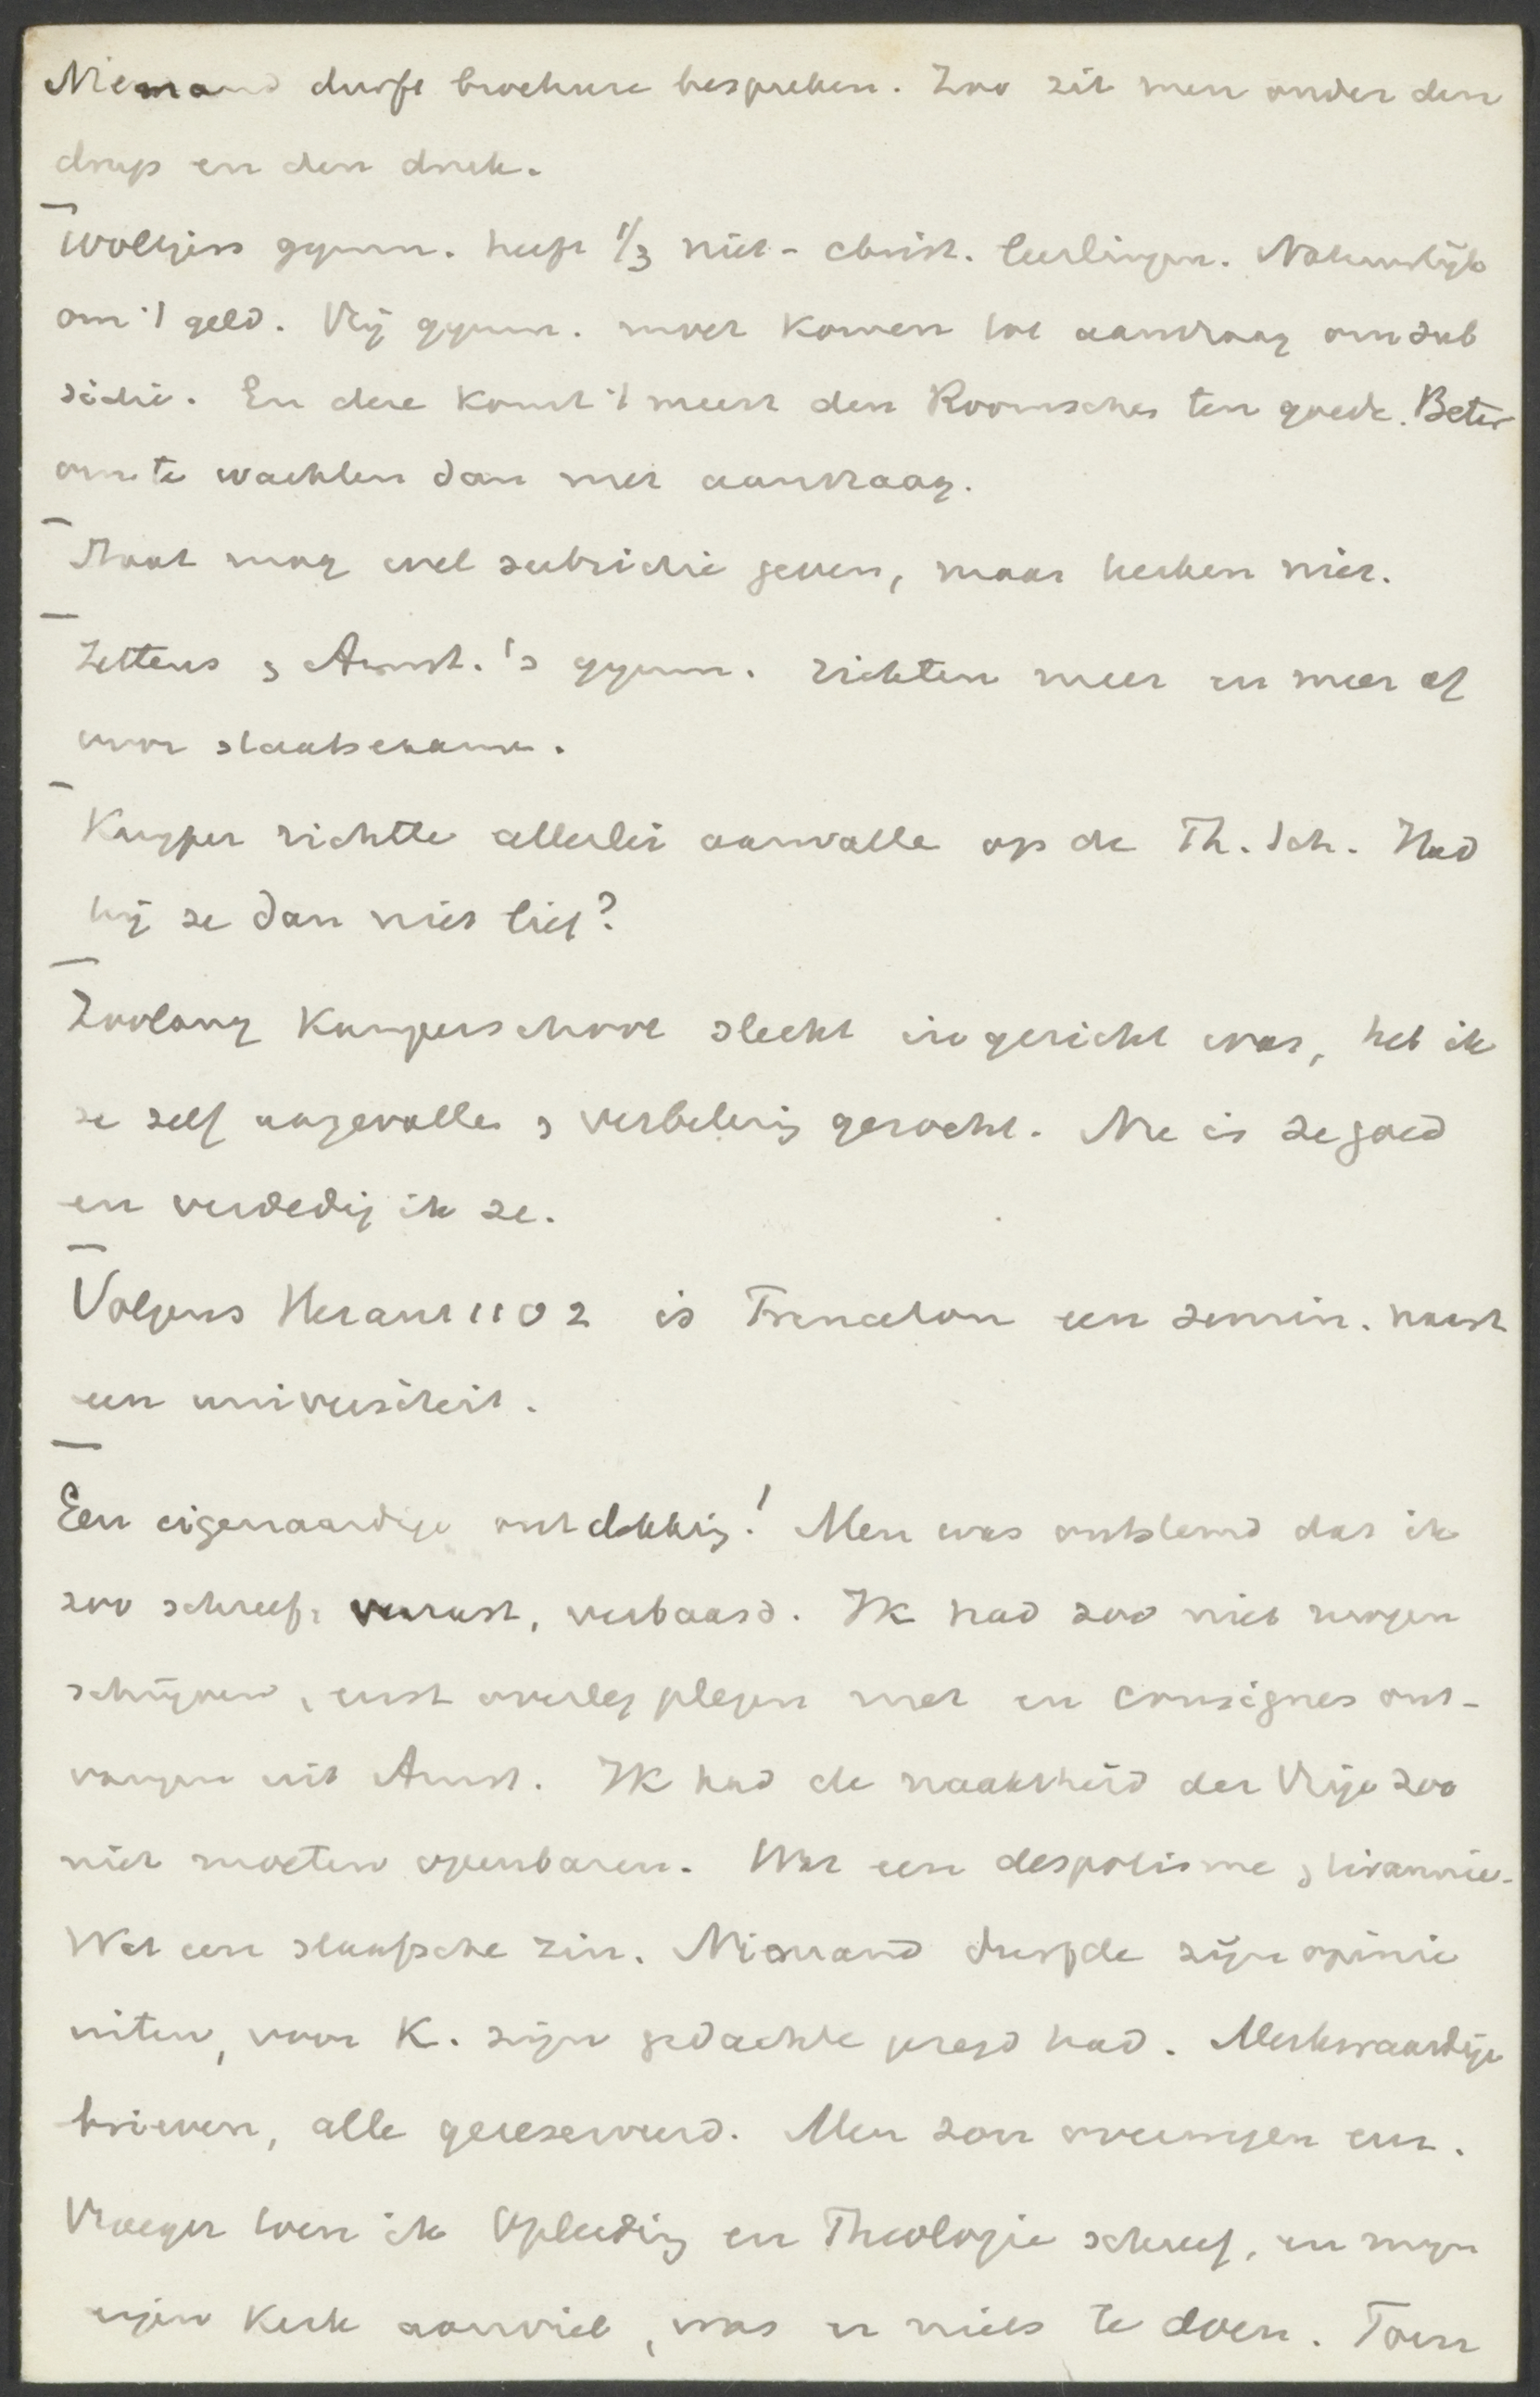 Niemand durft brochure bespreken. Zoo zit men onder den
drup en den druk.
Woltjers gymn. heeft 1/3 niet-christ. leerlingen. Natuurlijk
om 't geld. Vrij gymn. moet komen tot aanvraag om sub
sidie. En deze komt 't meest den Roomschen ten goede. Beter
om te wachten dan met aanvraag.
Staat mag wel subsidie geven, maar kerken niet.
Zettens & Amst.'s gymn. richten meer en meer af
voor staatsexamen.
Kuyper richtte allerlei aanvalle op de Th. Sch. Had
hij ze dan niet lief?
Zoolang Kamperschool slecht ingericht was, heb ik
ze zelf aangevallen & verbetering gezocht. Nu is ze goed
en verdedig ik ze.
Volgens Heraut 1102 is Princeton een semin. naast
een universiteit.
Een eigenaardige ontdekking! Men was ontstemd dat ik
zoo schreef, verrast, verbaasd. Ik had zoo niet mogen
schrijven, eerst overleg plegen met en consignes ont-
vangen uit Amst. Ik had de naaktheid der Vrije zoo
niet moeten openbaren. Wat een despotisme & tirannie.
Wat een slaafsche zin. Niemand durfde zijn opinie
uiten, voor K. zijn gedachte gezegd had. Merkwaardige
brieven, alle gereserveerd. Men zou overwegen enz.
Vroeger toen ik Opleiding en Theologie schreef, en mijn
eigen Kerk aanviel, was er niets te doen. Toen